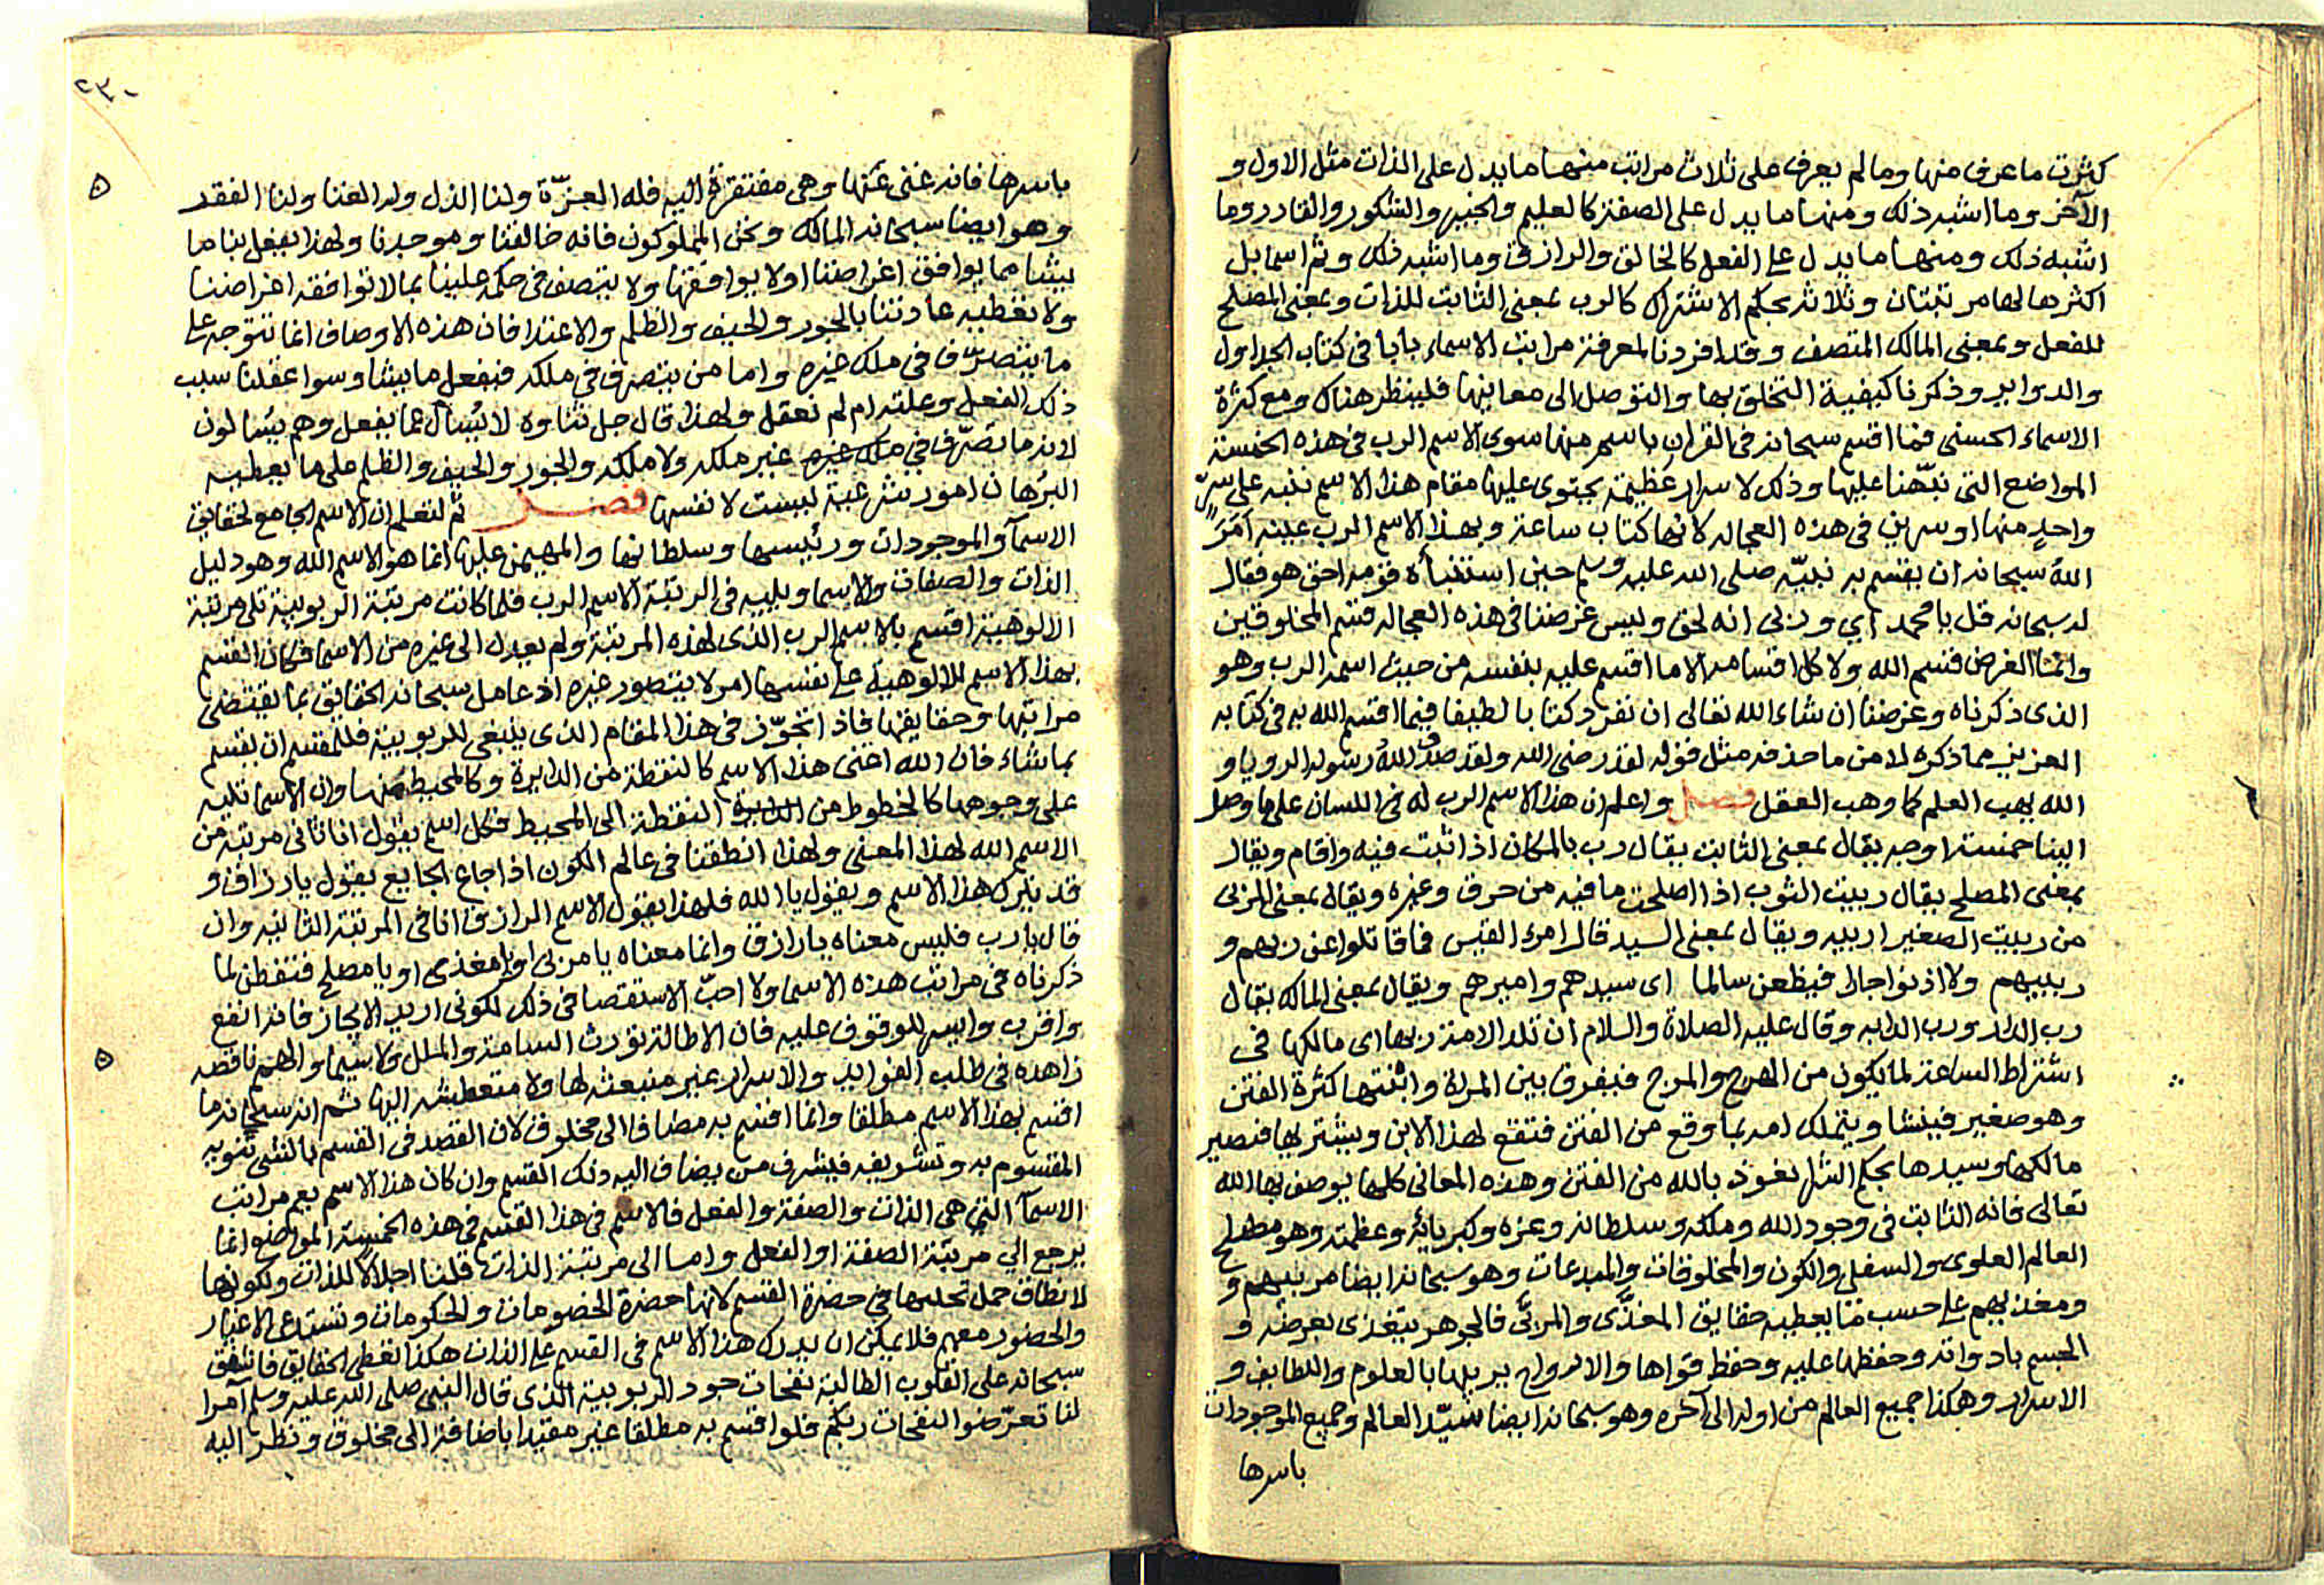 كثرت ما عرف منها وما لم يعرف على ثلاث مراتب منها ما يدل على الذات مثل الاول و
الآخر وما اشبه ذلك ومنها ما يدل على الصفة كالعليم والخبير والشكور والقادر وما
اشبه ذلك ومنها ما يدل على الفعل كالخالق والرازق وما اشبه ذلك وثم اسما بل
اكثرها لها مرتبتان وثلاثة بحكم الاشتراك كالرب بمعنى الثابت للذات وبمعنى المصلح
للفعل وبمعنى المالك المتصف وقد افردنا لمعرفة مراتب الاسماء بابا في كتاب الجداول
والدواير وذكرنا كيفية التخلق بها والتوصل الى معانيها فلينظر هناك ومع كثرة
الاسماء الحسنى فما اقسم سبحانه في القران باسم منها سوى الاسم الرب في هذه الخمسة
المواضع التي نبّهنا عليها وذلك لاسرار عظيمة يحتوى عليها مقام هذا الاسم ننبه على سرّ
واحدٍ منها او سرين في هذه العجاله لانها كتاب ساعة وبهذا الاسم الرب عينه امَرَ
اللهُ سبحانه ان يقسم به نبيّه صلى الله عليه وسلم حين استنبأه قومه احق هو فقال
له سبحانه قل يا محمد اي وربى انه لحق وليس غرضنا في هذه العجاله قسم المخلوقين
وانما الغرض قسم الله ولا كل اقسامه الا ما اقسم عليه بنفسه من حيث اسمه الرب وهو
الذى ذكرناه وغرضنا ان شاء الله تعالى ان نفرد كتابا لطيفا فيما اقسم الله به في كتابه
العزيز مما ذكره لا من ما حذفه مثل قوله لقد رضى الله ولقد صدق اللهُ رسوله الرويا و
الله يهب العلم كما وهب العقل فصل واعلم ان هذا الاسم الرب له في اللسان على ما وصل
الينا خمسة اوجه يقال بمعنى الثابت يقال رب بالمكان اذا ثبت فيه واقام ويقال
بمعنى المصلح يقال ربيت الثوب اذا اصلحت ما فيه من حرق وغيره ويقال بمعنى المربى
من ربيت الصغير اربيه ويقال بمعنى السيد قال امرء القيس فما قاتلوا عن ربهم و
ربيبهم ولا اذنوا جارا فيظعن سالما اى سيدهم واميرهم ويقال بمعنى المالك يقال
رب الدار ورب الدابه وقال عليه الصلاة والسلام ان تلد الامة ربها اى مالكها في
اشتراط الساعة لما يكون من الهرج والمرج فيفرق بين المراة وابنتها كثرة الفتن
وهو صغير فينشا ويتملك امه بما وقع من الفتن فتقع لهذا الابن ويشتر بها فتصير
مالكها وسيدها بحكم الشرا نعوذ بالله من الفتن وهذه المعاني كلها يوصف بها الله
تعالى فانه الثابت في وجود الله وملكه وسلطانه وعزه وكبريائه وعظمته وهو مصلح
العالم العلوى والسفلى والكون والمخلوقات والمبدعات وهو سبحانه ايضا مربيهم و
ومغذيهم على حسب ما يعطيه حقايق المغذَّى والمربَّى فالجوهر يتغذى بعرضه و
الجسم بادواته وحفظها عليه وحفظ قواها والارواح يربيها بالعلوم واللطايف و
الاسرار وهكذا جميع العالم من اوله الى آخره وهو سبحانه ايضا سيّد العالم وجميع الموجودات
باسرها
٢٣٠
باسرها فانه غنى عنها وهي مفتقرة اليه فله العزّة ولنا الذل وله الغنا ولنا الفقر
وهو ايضا سبحانه المالك ونحن المملوكون فانه خالقنا وموجدنا ولهذا يفعل بنا ما
يشا مما يوافق اغراضنا او لا يوافقها ولا يتصف في حكمه علينا بما لا توافقه اغراضنا
ولا تعطيه عادتنا بالجور والحيف والظلم والاعتدا فان هذه الاوصاف انما تتوجه على
ما يتصرّف في ملك غيره واما من يتصرف في ملكه فيفعل ما يشا وسوا عقلنا سبب
ذلك الفعل وعلته ام لم نعقل ولهذا قال جل ثناوه لا يُسأل عما يفعل وهم يسالون
لانه ما تصرّف في ملك غيره غير ملكه ولا ملكه والجور والحيف والظلم على ما يعطيه
البرُهان امور شرعية ليست لا نفسها فصل ثم لتعلم ان الاسم الجامع لحقايق
الاسمآ والموجودات ورئيسها وسلطانها والمهيمن عليها انما هو الاسم الله وهو دليل
الذات والصفات والاسما ويليه في الرتبة الاسم الرب فلما كانت مرتبة الربوبية تلى مرتبة
الالوهية اقسم بالاسم الرب الذى لهذه المرتبة ولم يعدل الى غيره من الاسما فكان القسم
بهذا الاسم للالوهية على نفسها امر لا يتصور غيره اذ عامل سبحانه الحقايق بما يقتضى
مراتبها وحقايقها فاذا تحوّز في هذا المقام الذى ينبغى للربوبية فللمقسم ان يقسم
بما شاء فان الله اعنى هذا الاسم كالنقطة من الدايرة وكالمحيط منها وان الاسما تليه
على وجوهها كالخطوط من الدايرة النقطة الى المحيط فكل اسم يقول انا ثاني مرتبة من
الاسم الله لهذا المعنى ولهذا انطقنا في عالم الكون اذا جاع الجايع يقول يا رزاق و
قد يترك هذا الاسم ويقول يا الله فلهذا يقول الاسم الرازق انا في المرتبة الثانيه وان
قال يا رب فليس معناه يا رازق وانما معناه يا مربى او يا مغذى او يا مصلح فتفطن لما
ذكرناه في مراتب هذه الاسما ولا احبّ الاستقصا في ذلك لكونى اريد الايجاز فانه انفع
واقرب وايسر للوقوف عليه فان الاطالة تورث السامة والملل ولا سيما والهمم ناقصه
زاهده في طلب الفوايد والاسرار غير منبعثه لها ولا متعطشه اليها ثم انه سبحانه ما
اقسم بهذا الاسم مطلقا وانما اقسم به مضافا الى مخلوق لان القصد في القسم بالشى تنويه
المقسوم به وتشريفه فيشرف من يضاف اليه ذلك القسم وان كان هذا الاسم يعم مراتب
الاسمآ التي هي الذات والصفة والفعل فالاسم في هذا القسم في هذه الخمسة المواضع انما
يرجع الي مرتبة الصفة او الفعل واما الى مرتبة الذات قلنا اجلالا للذات ولكونها
لا نطاق حمل تجليها في حضرة القسم لانها حضرة الخصومات والحكومات وتستدعى الاغيار
والحضور معهم فلا يمكن ان يدرك هذا الاسم في القسم على الذات هكذا تعطى الحقايق فانفق
سبحانه على القلوب الطالبة نفحات جود الربوبية الذى قال النبى صلى الله عليه وسلم آمرا
لنا تعرّضوا لنفحات ربكم فلو اقسم به مطلقا غير مقيد باضافة الى مخلوق ونظر اليه